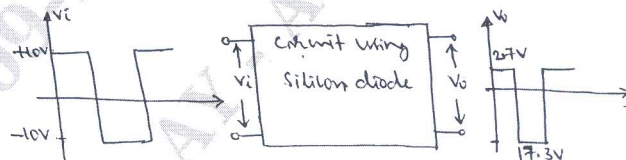 Vi
+10V
-10V
Vi
circuit using
Silicon diode
Vo
Vo
2.7V
17.3V